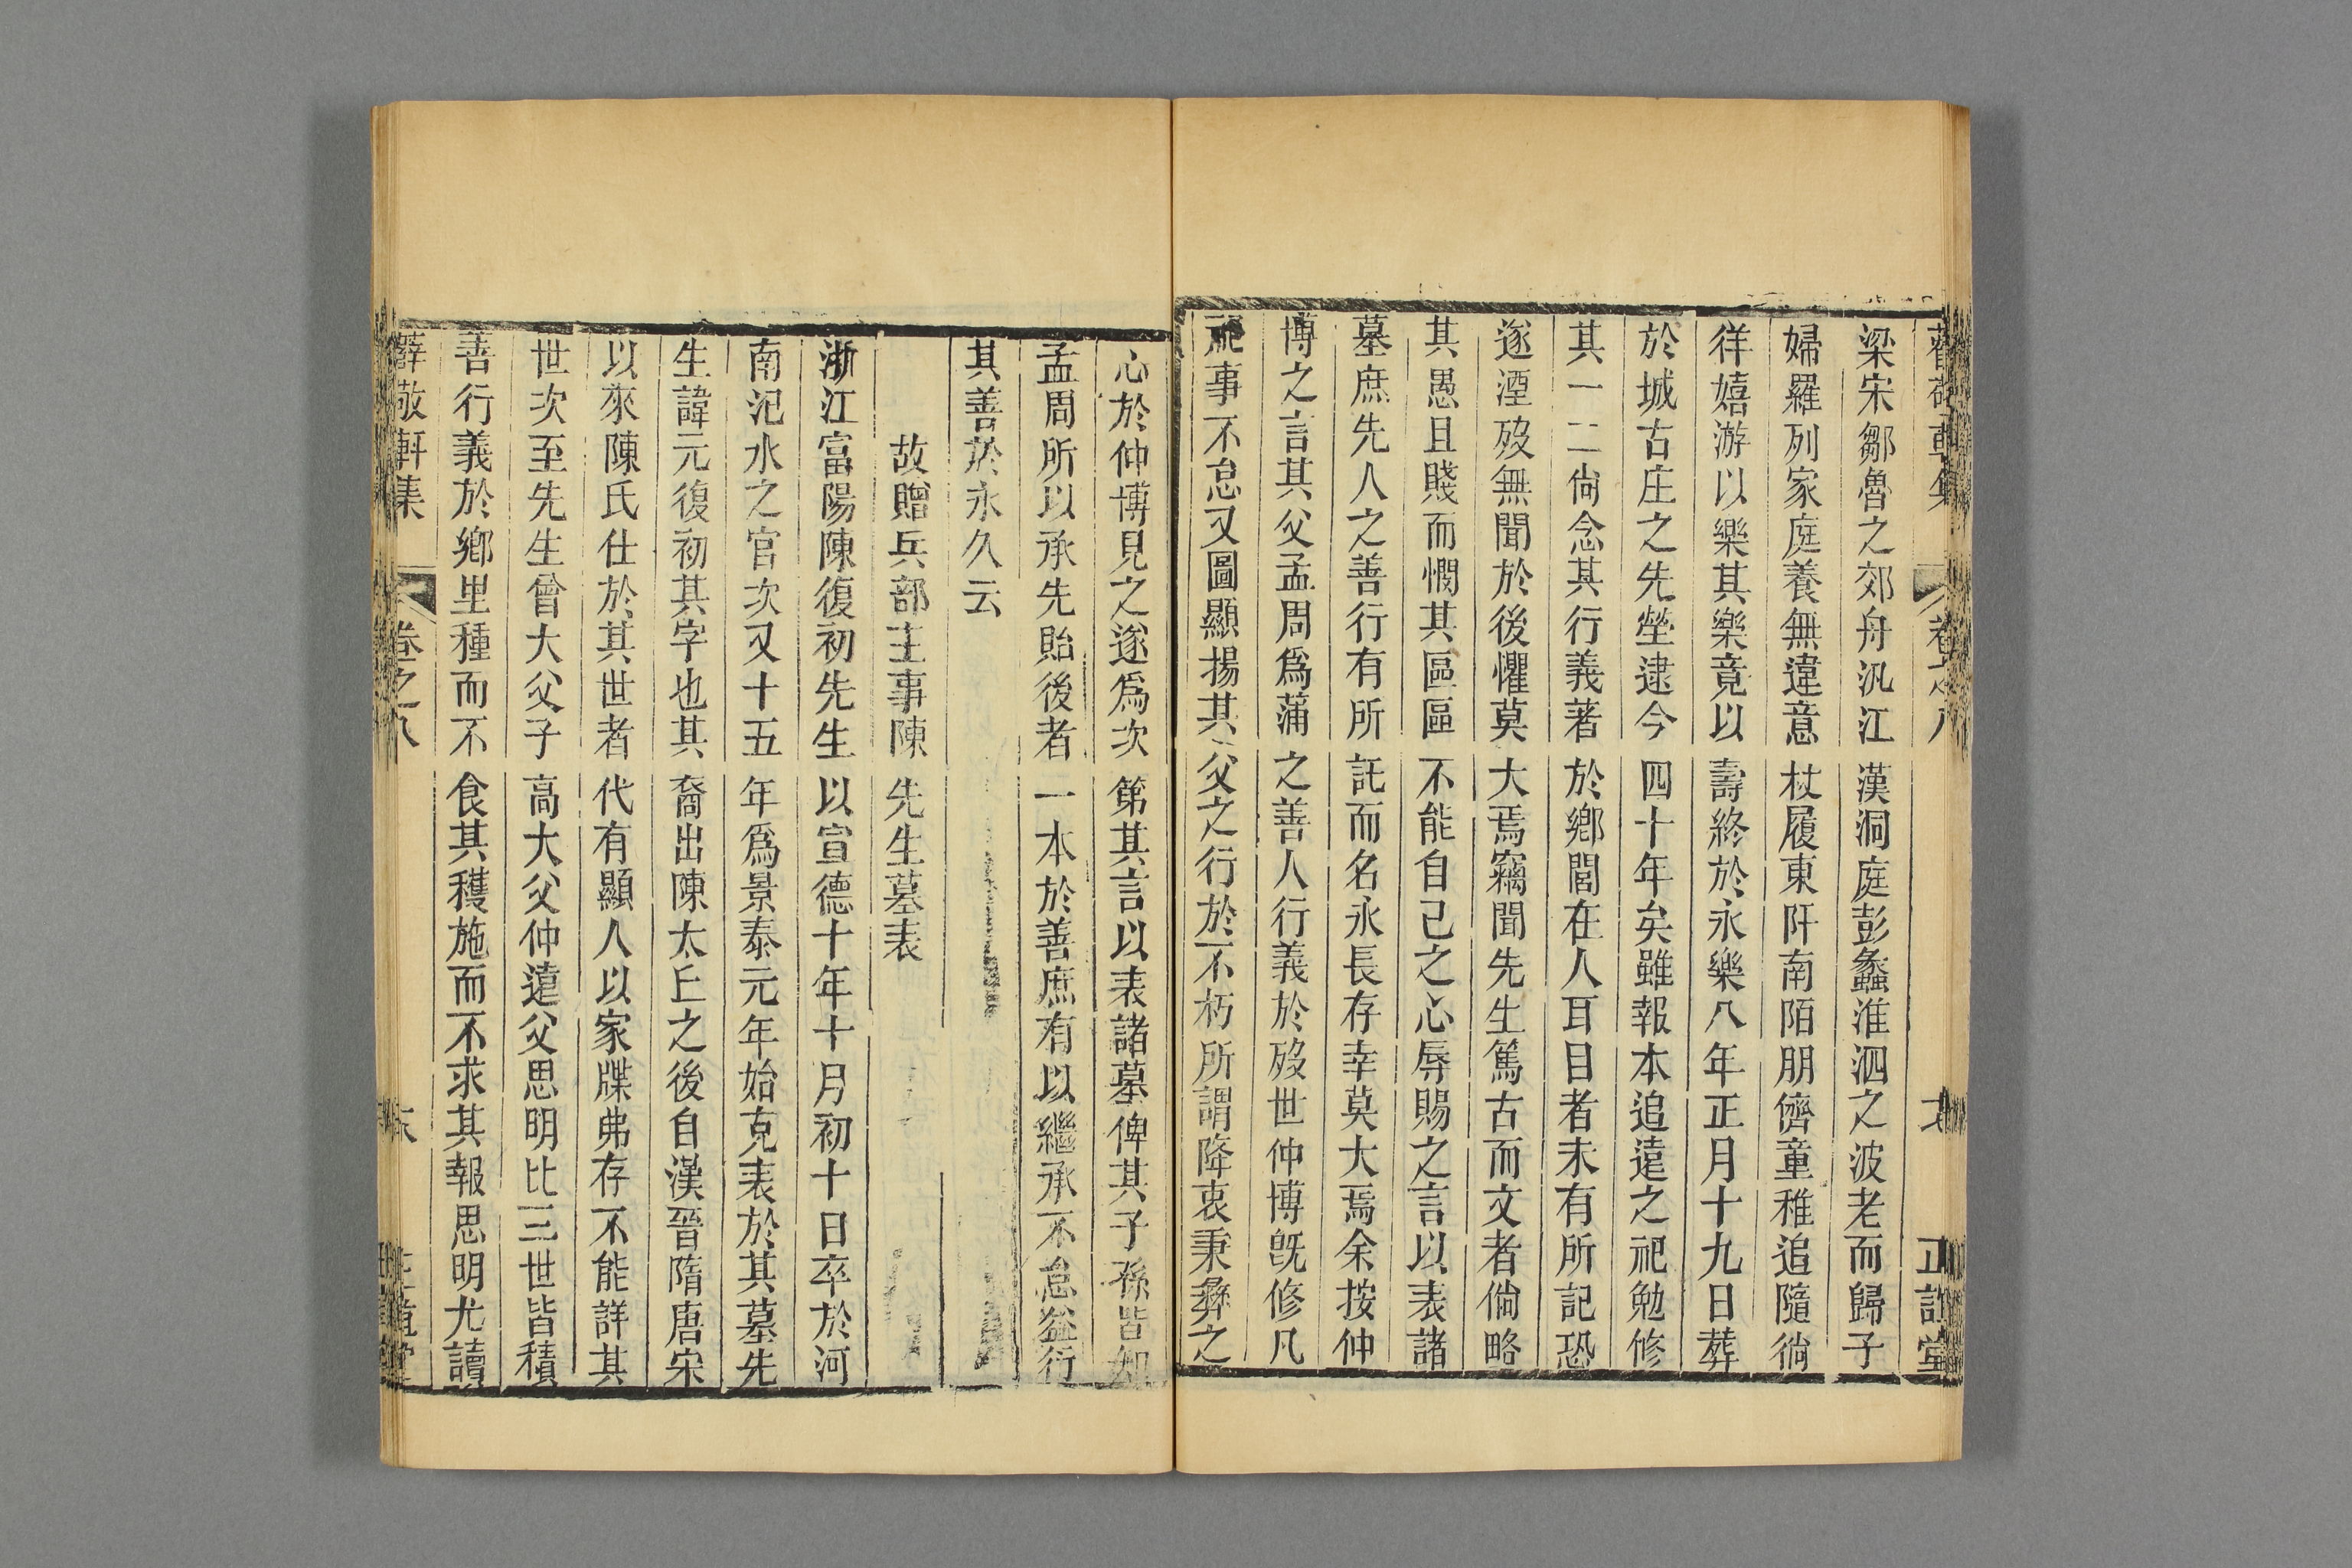 梁宋鄒魯之郊舟汎江漢洞庭彭蠡淮泗之波老而歸子
婦羅列家庭養無違意杖履東阡南陌朋儕童稚追隨徜
徉嬉游以樂其樂竟以壽終於永樂八年正月十九日葬
於城古庄之先塋逮今四十年矣雖報本追遠之祀勉修
其一二尙念其行義著於鄉閭在人耳目者未有所記恐
遂湮歿無聞於後懼莫大焉竊聞先生篤古而文者倘略
其愚且賤而憫其區區不能自己之心辱賜之言以表諸
墓庶先人之善行有所託而名永長存幸莫大焉余按仲
博之言其父孟周爲蒲之善人行義於歿世仲博旣修凡
祀事不怠又圖顯揚其父之行於不朽所謂降衷秉彝之
心於仲博見之遂爲次第其言以表諸墓俾其子孫皆如
孟周所以承先貽後者一本於善庶有以繼承不怠益行
其善於永久云
故贈兵部主事陳先生墓表
浙江富陽陳復初先生以宣德十年十月初十日卒於河
南汜水之官次又十五年爲景泰元年始克表於其墓先
生諱元復初其字也其裔出陳太丘之後自漢晉隋唐宋
以來陳氏仕於其世者代有顯人以家牒弗存不能詳其
世次至先生曾大父子高大父仲遠父思明比三世皆積
善行義於鄉里種而不食其穫施而不求其報思明尤讀
薛敬軒集 卷之八